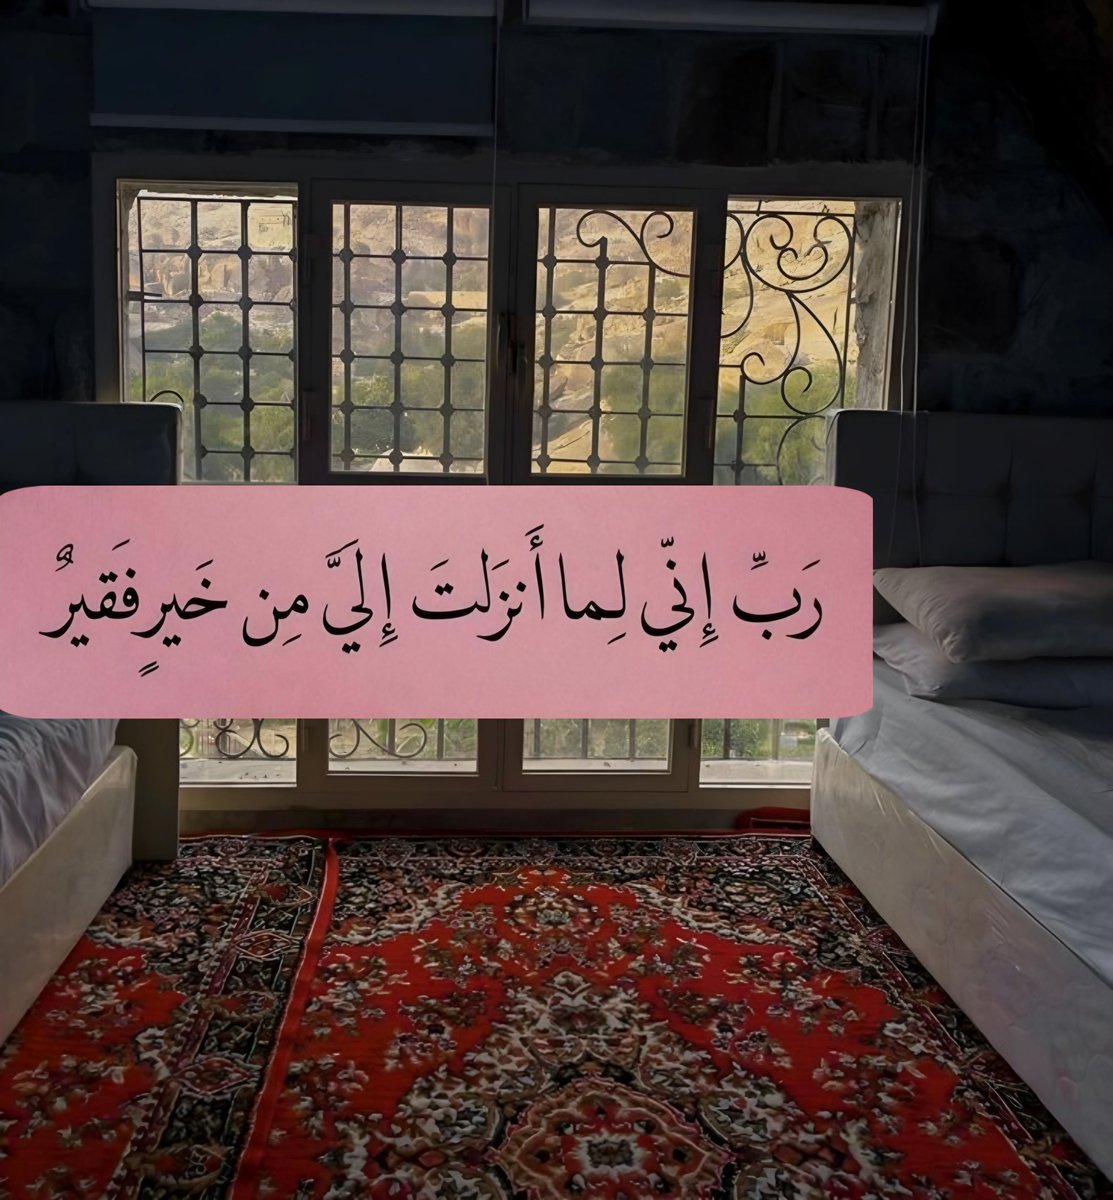 رَبِّ إِنّي لِما أَنزَلتَ إِلَيَّ مِن خَيرٍ فَقيرٌ